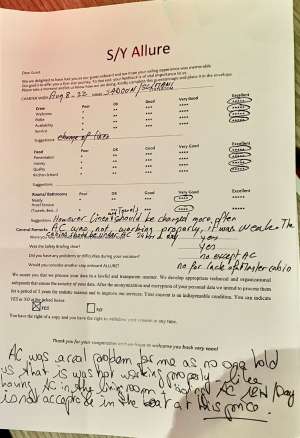 S/Y Allure
Dear Guest,
We are delighted to have had you as our guest onboard and we hope your sailing experience was memorable.
CHARTER Aug 8-22
Crew Poor OK Good Very Good Excellent
Welcome
Politeness
Availability
Service
Suggestions change of linen
Food Poor OK Good Very Good Excellent
Presentation
Variety
Quality
Kitchen brand
Suggestions
Rooms/Bathrooms Poor OK Good Very Good Excellent
Neatly
Hotel Service
(Towels, Bed...)
Suggestions However linen + Towels should be changed more often
General Remarks AC was not working properly, it was weak. The
cabins should be under AC
yes
Was the Safety Briefing clear? yes
Did you have any problems or difficulties during your vacation? no except AC
Would you consider another trip onboard s/y Allure? no for lack of Master cabin
We assure you that we process your data in a lawful and transparent manner. We develop appropriate technical and organizational
safeguards that ensure the security of your data. After the anonymization and encryption of your personal data we intend to process them
for a period of 5 years for statistic reasons and to improve our services. Your consent is an indispensable condition. You can indicate
YES or NO at the period below:
YES NO
You have the right of a copy and you have the right to withdraw your consent at any time.
Thank you for your cooperation and we hope to welcome you back very soon!
AC was a real problem for me as no one told
us that is was not working properly. Like
having AC in the living room & not AC
is not accepted in the boat at this price.